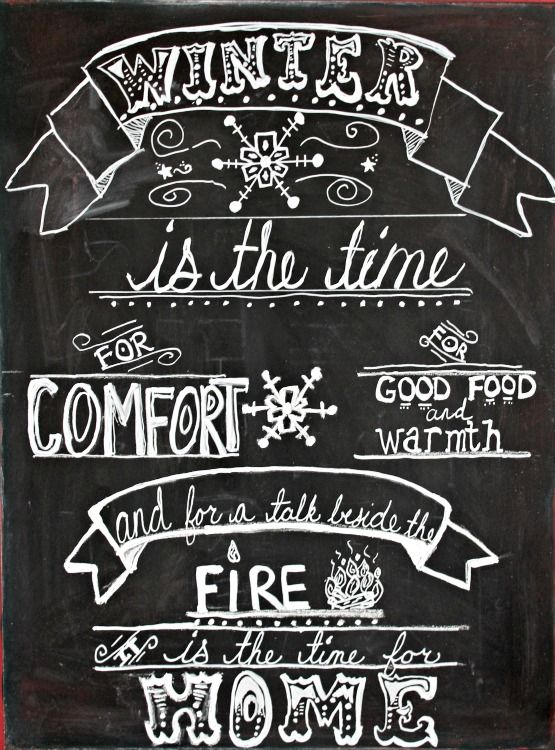 WINTER
is the time
FOR
COMFORT
FOR
GOOD FOOD
and
warmth
and for a talk beside the
FIRE
IT is the time for
HOME